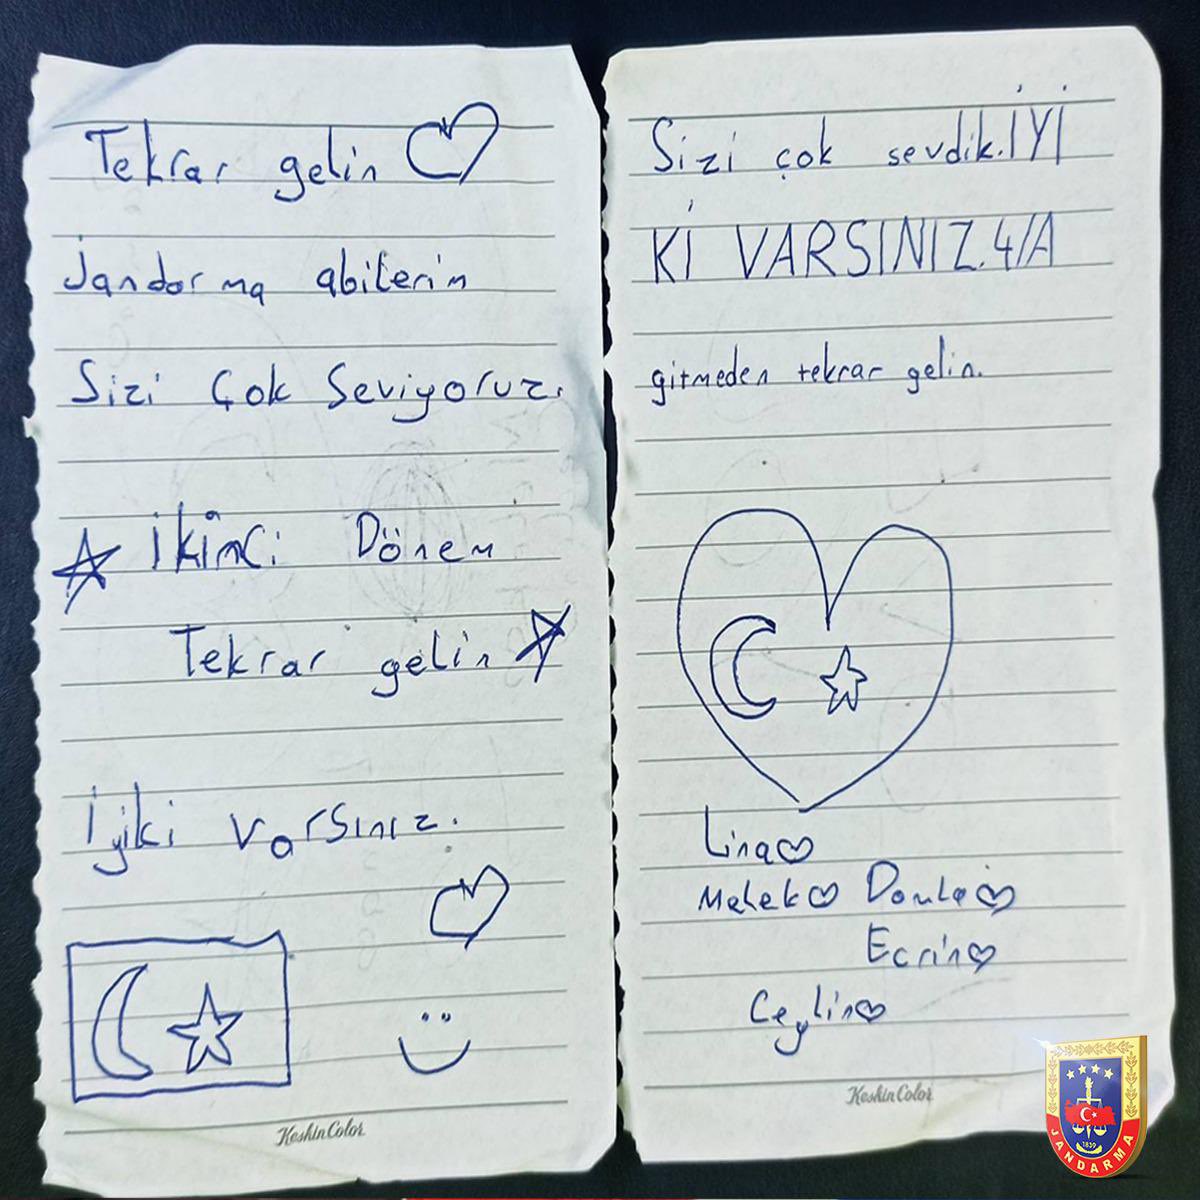 Tekrar gelin
Jandarma abilerim
Sizi Çok Seviyoruz.
İkinci Dönem
Tekrar gelin
İyiki varsınız.
KeskinColor
Sizi çok sevdik.İYİ
Kİ VARSINIZ.4/A
gitmeden tekrar gelin.
Lina
Melek Damla
Ecrin
Ceylin
KeskinColor
1839
JANDARMA